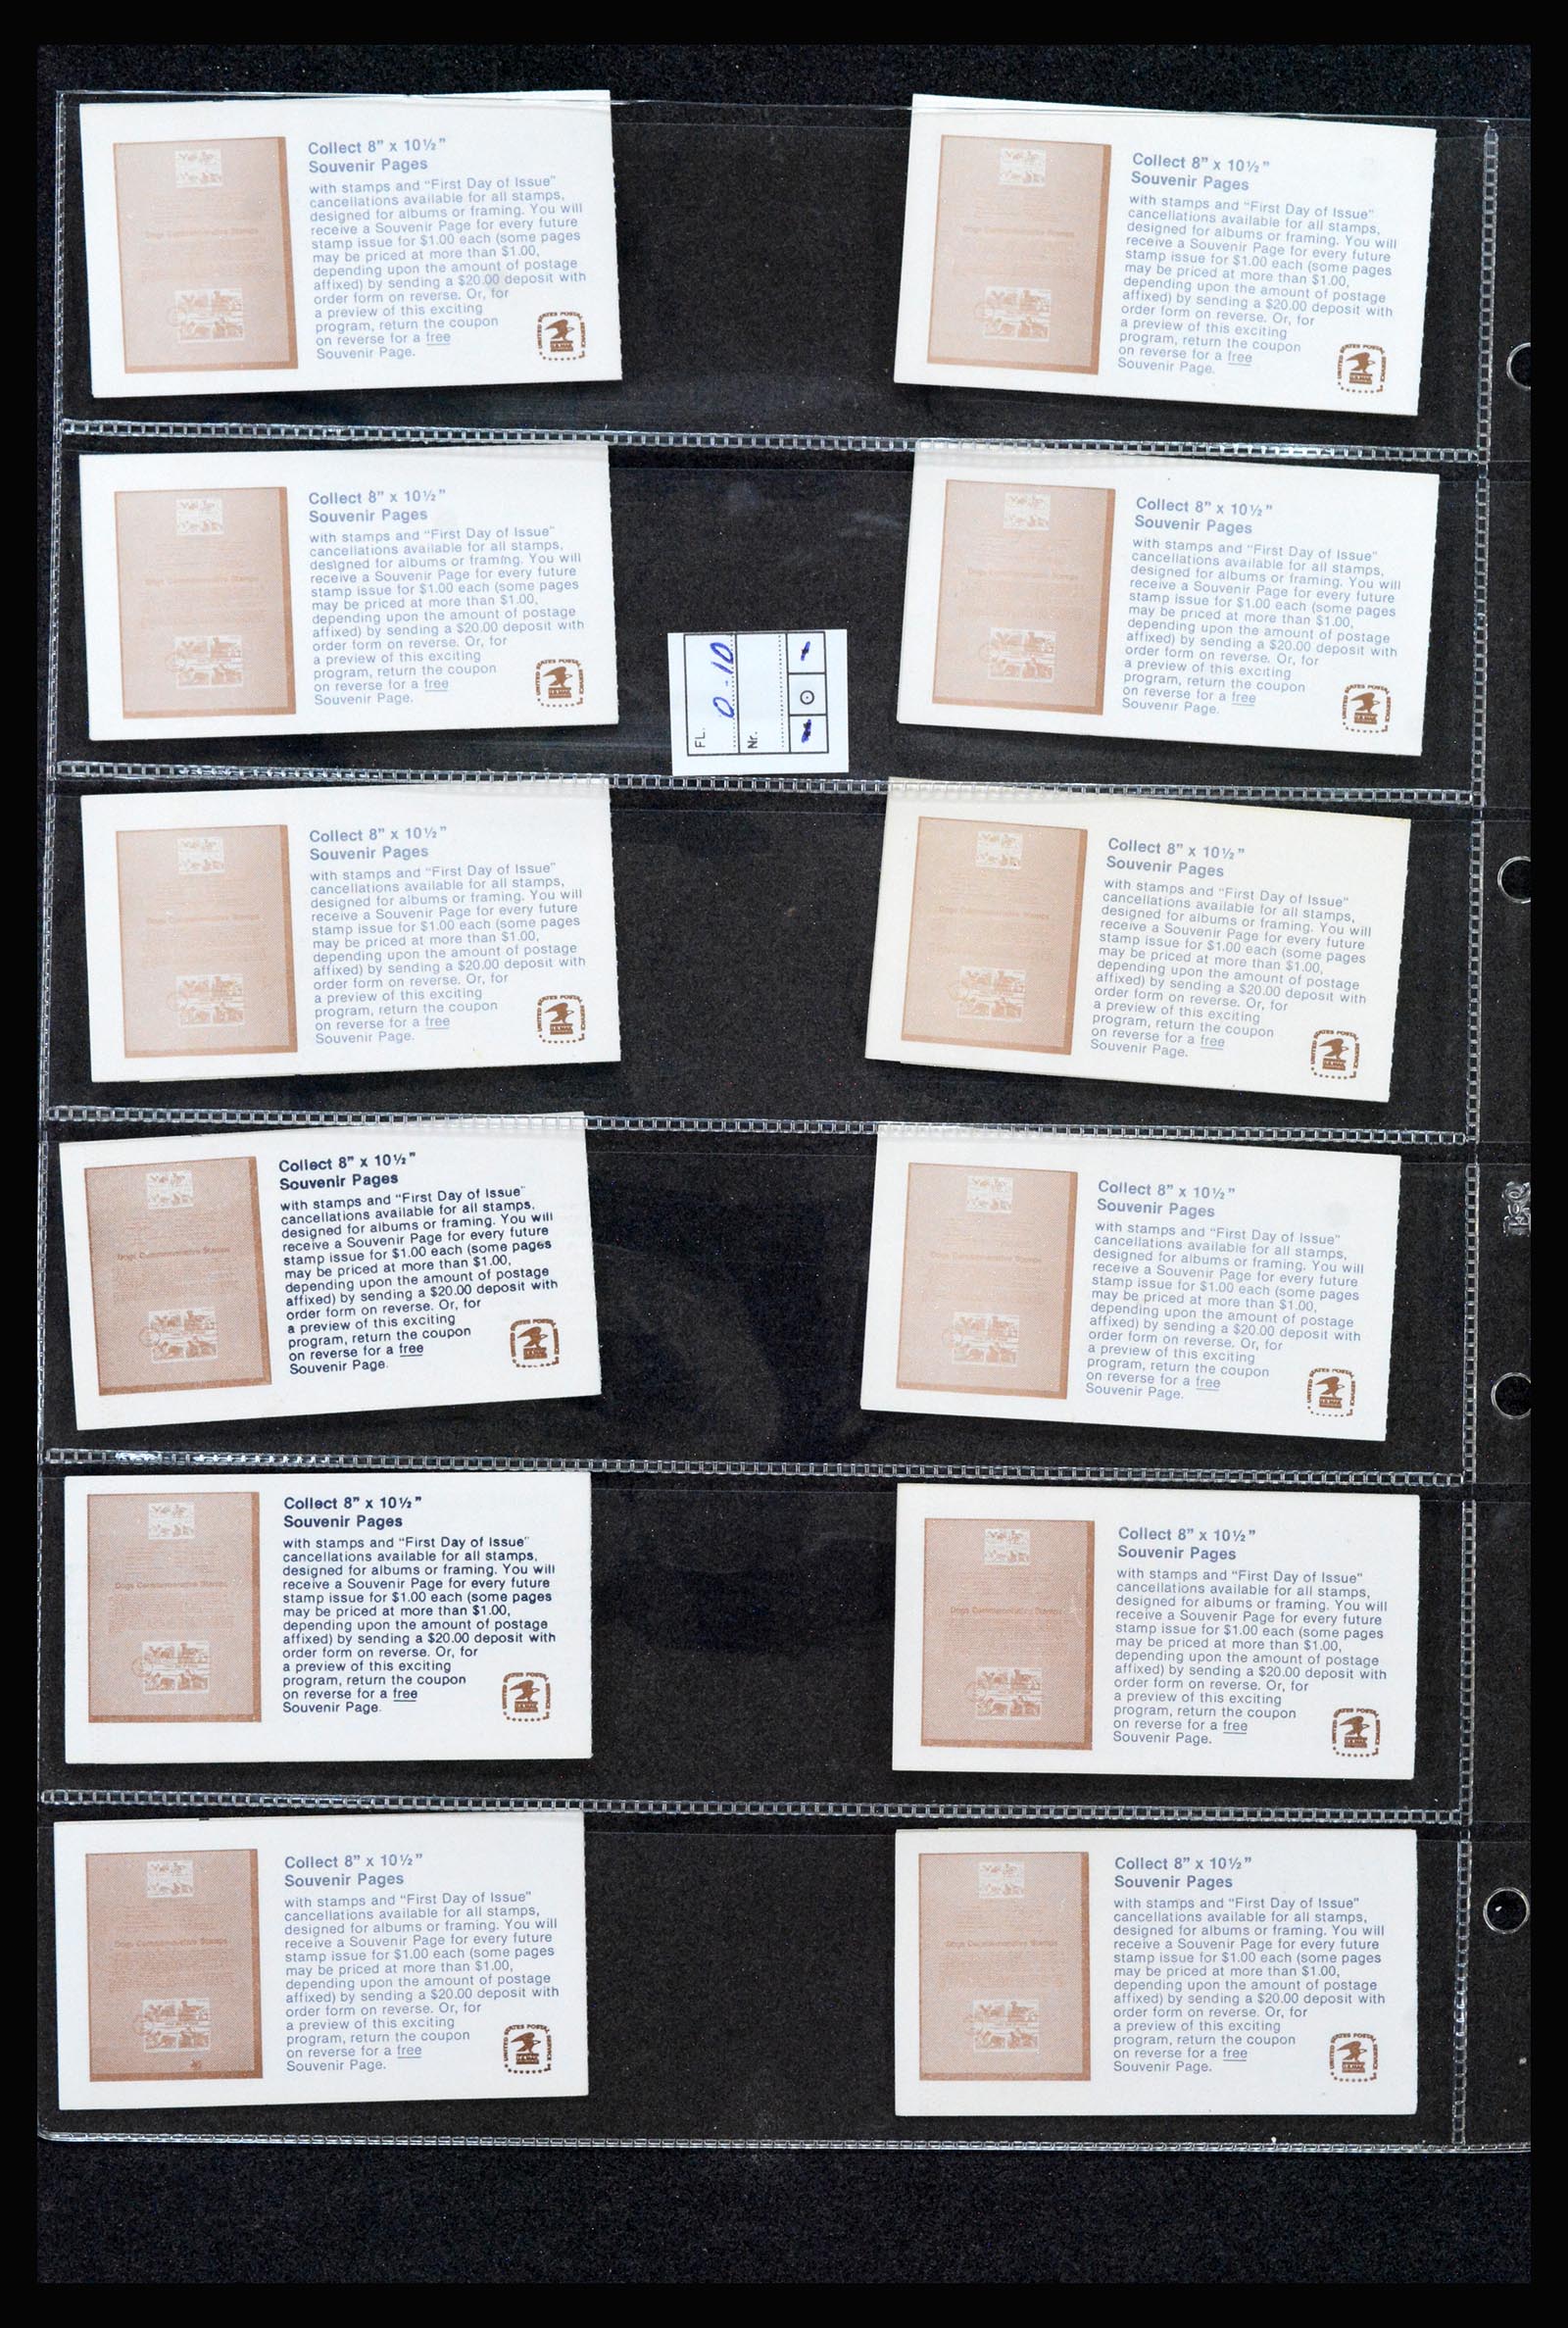 Collect 8" x 10½"
Souvenir Pages
with stamps and "First Day of Issue"
cancellations available for all stamps,
designed for albums or framing. You will
receive a Souvenir Page for every future
stamp issue for $1.00 each (some pages
may be priced at more than $1.00,
depending upon the amount of postage
affixed) by sending a $20.00 deposit with
order form on reverse. Or, for
a preview of this exciting
program, return the coupon
on reverse for a free
Souvenir Page.
Dogs Commemorative Stamps
UNITED STATES POSTAL SERVICE
Collect 8" x 10½"
Souvenir Pages
with stamps and "First Day of Issue"
cancellations available for all stamps,
designed for albums or framing. You will
receive a Souvenir Page for every future
stamp issue for $1.00 each (some pages
may be priced at more than $1.00,
depending upon the amount of postage
affixed) by sending a $20.00 deposit with
order form on reverse. Or, for
a preview of this exciting
program, return the coupon
on reverse for a free
Souvenir Page.
Dogs Commemorative Stamps
UNITED STATES POSTAL SERVICE
Collect 8" x 10½"
Souvenir Pages
with stamps and "First Day of Issue"
cancellations available for all stamps,
designed for albums or framing. You will
receive a Souvenir Page for every future
stamp issue for $1.00 each (some pages
may be priced at more than $1.00,
depending upon the amount of postage
affixed) by sending a $20.00 deposit with
order form on reverse. Or, for
a preview of this exciting
program, return the coupon
on reverse for a free
Souvenir Page.
Dogs Commemorative Stamps
UNITED STATES POSTAL SERVICE
FL. 0-10
Nr.
Collect 8" x 10½"
Souvenir Pages
with stamps and "First Day of Issue"
cancellations available for all stamps,
designed for albums or framing. You will
receive a Souvenir Page for every future
stamp issue for $1.00 each (some pages
may be priced at more than $1.00,
depending upon the amount of postage
affixed) by sending a $20.00 deposit with
order form on reverse. Or, for
a preview of this exciting
program, return the coupon
on reverse for a free
Souvenir Page.
Dogs Commemorative Stamps
UNITED STATES POSTAL SERVICE
Collect 8" x 10½"
Souvenir Pages
with stamps and "First Day of Issue"
cancellations available for all stamps,
designed for albums or framing. You will
receive a Souvenir Page for every future
stamp issue for $1.00 each (some pages
may be priced at more than $1.00,
depending upon the amount of postage
affixed) by sending a $20.00 deposit with
order form on reverse. Or, for
a preview of this exciting
program, return the coupon
on reverse for a free
Souvenir Page.
Dogs Commemorative Stamps
UNITED STATES POSTAL SERVICE
Collect 8" x 10½"
Souvenir Pages
with stamps and "First Day of Issue"
cancellations available for all stamps,
designed for albums or framing. You will
receive a Souvenir Page for every future
stamp issue for $1.00 each (some pages
may be priced at more than $1.00,
depending upon the amount of postage
affixed) by sending a $20.00 deposit with
order form on reverse. Or, for
a preview of this exciting
program, return the coupon
on reverse for a free
Souvenir Page.
Dogs Commemorative Stamps
UNITED STATES POSTAL SERVICE
Collect 8" x 10½"
Souvenir Pages
with stamps and "First Day of Issue"
cancellations available for all stamps,
designed for albums or framing. You will
receive a Souvenir Page for every future
stamp issue for $1.00 each (some pages
may be priced at more than $1.00,
depending upon the amount of postage
affixed) by sending a $20.00 deposit with
order form on reverse. Or, for
a preview of this exciting
program, return the coupon
on reverse for a free
Souvenir Page.
Dogs Commemorative Stamps
UNITED STATES POSTAL SERVICE
Collect 8" x 10½"
Souvenir Pages
with stamps and "First Day of Issue"
cancellations available for all stamps,
designed for albums or framing. You will
receive a Souvenir Page for every future
stamp issue for $1.00 each (some pages
may be priced at more than $1.00,
depending upon the amount of postage
affixed) by sending a $20.00 deposit with
order form on reverse. Or, for
a preview of this exciting
program, return the coupon
on reverse for a free
Souvenir Page.
Dogs Commemorative Stamps
UNITED STATES POSTAL SERVICE
Collect 8" x 10½"
Souvenir Pages
with stamps and "First Day of Issue"
cancellations available for all stamps,
designed for albums or framing. You will
receive a Souvenir Page for every future
stamp issue for $1.00 each (some pages
may be priced at more than $1.00,
depending upon the amount of postage
affixed) by sending a $20.00 deposit with
order form on reverse. Or, for
a preview of this exciting
program, return the coupon
on reverse for a free
Souvenir Page.
Dogs Commemorative Stamps
UNITED STATES POSTAL SERVICE
Collect 8" x 10½"
Souvenir Pages
with stamps and "First Day of Issue"
cancellations available for all stamps,
designed for albums or framing. You will
receive a Souvenir Page for every future
stamp issue for $1.00 each (some pages
may be priced at more than $1.00,
depending upon the amount of postage
affixed) by sending a $20.00 deposit with
order form on reverse. Or, for
a preview of this exciting
program, return the coupon
on reverse for a free
Souvenir Page.
Dogs Commemorative Stamps
UNITED STATES POSTAL SERVICE
Collect 8" x 10½"
Souvenir Pages
with stamps and "First Day of Issue"
cancellations available for all stamps,
designed for albums or framing. You will
receive a Souvenir Page for every future
stamp issue for $1.00 each (some pages
may be priced at more than $1.00,
depending upon the amount of postage
affixed) by sending a $20.00 deposit with
order form on reverse. Or, for
a preview of this exciting
program, return the coupon
on reverse for a free
Souvenir Page.
Dogs Commemorative Stamps
UNITED STATES POSTAL SERVICE
Collect 8" x 10½"
Souvenir Pages
with stamps and "First Day of Issue"
cancellations available for all stamps,
designed for albums or framing. You will
receive a Souvenir Page for every future
stamp issue for $1.00 each (some pages
may be priced at more than $1.00,
depending upon the amount of postage
affixed) by sending a $20.00 deposit with
order form on reverse. Or, for
a preview of this exciting
program, return the coupon
on reverse for a free
Souvenir Page.
Dogs Commemorative Stamps
UNITED STATES POSTAL SERVICE